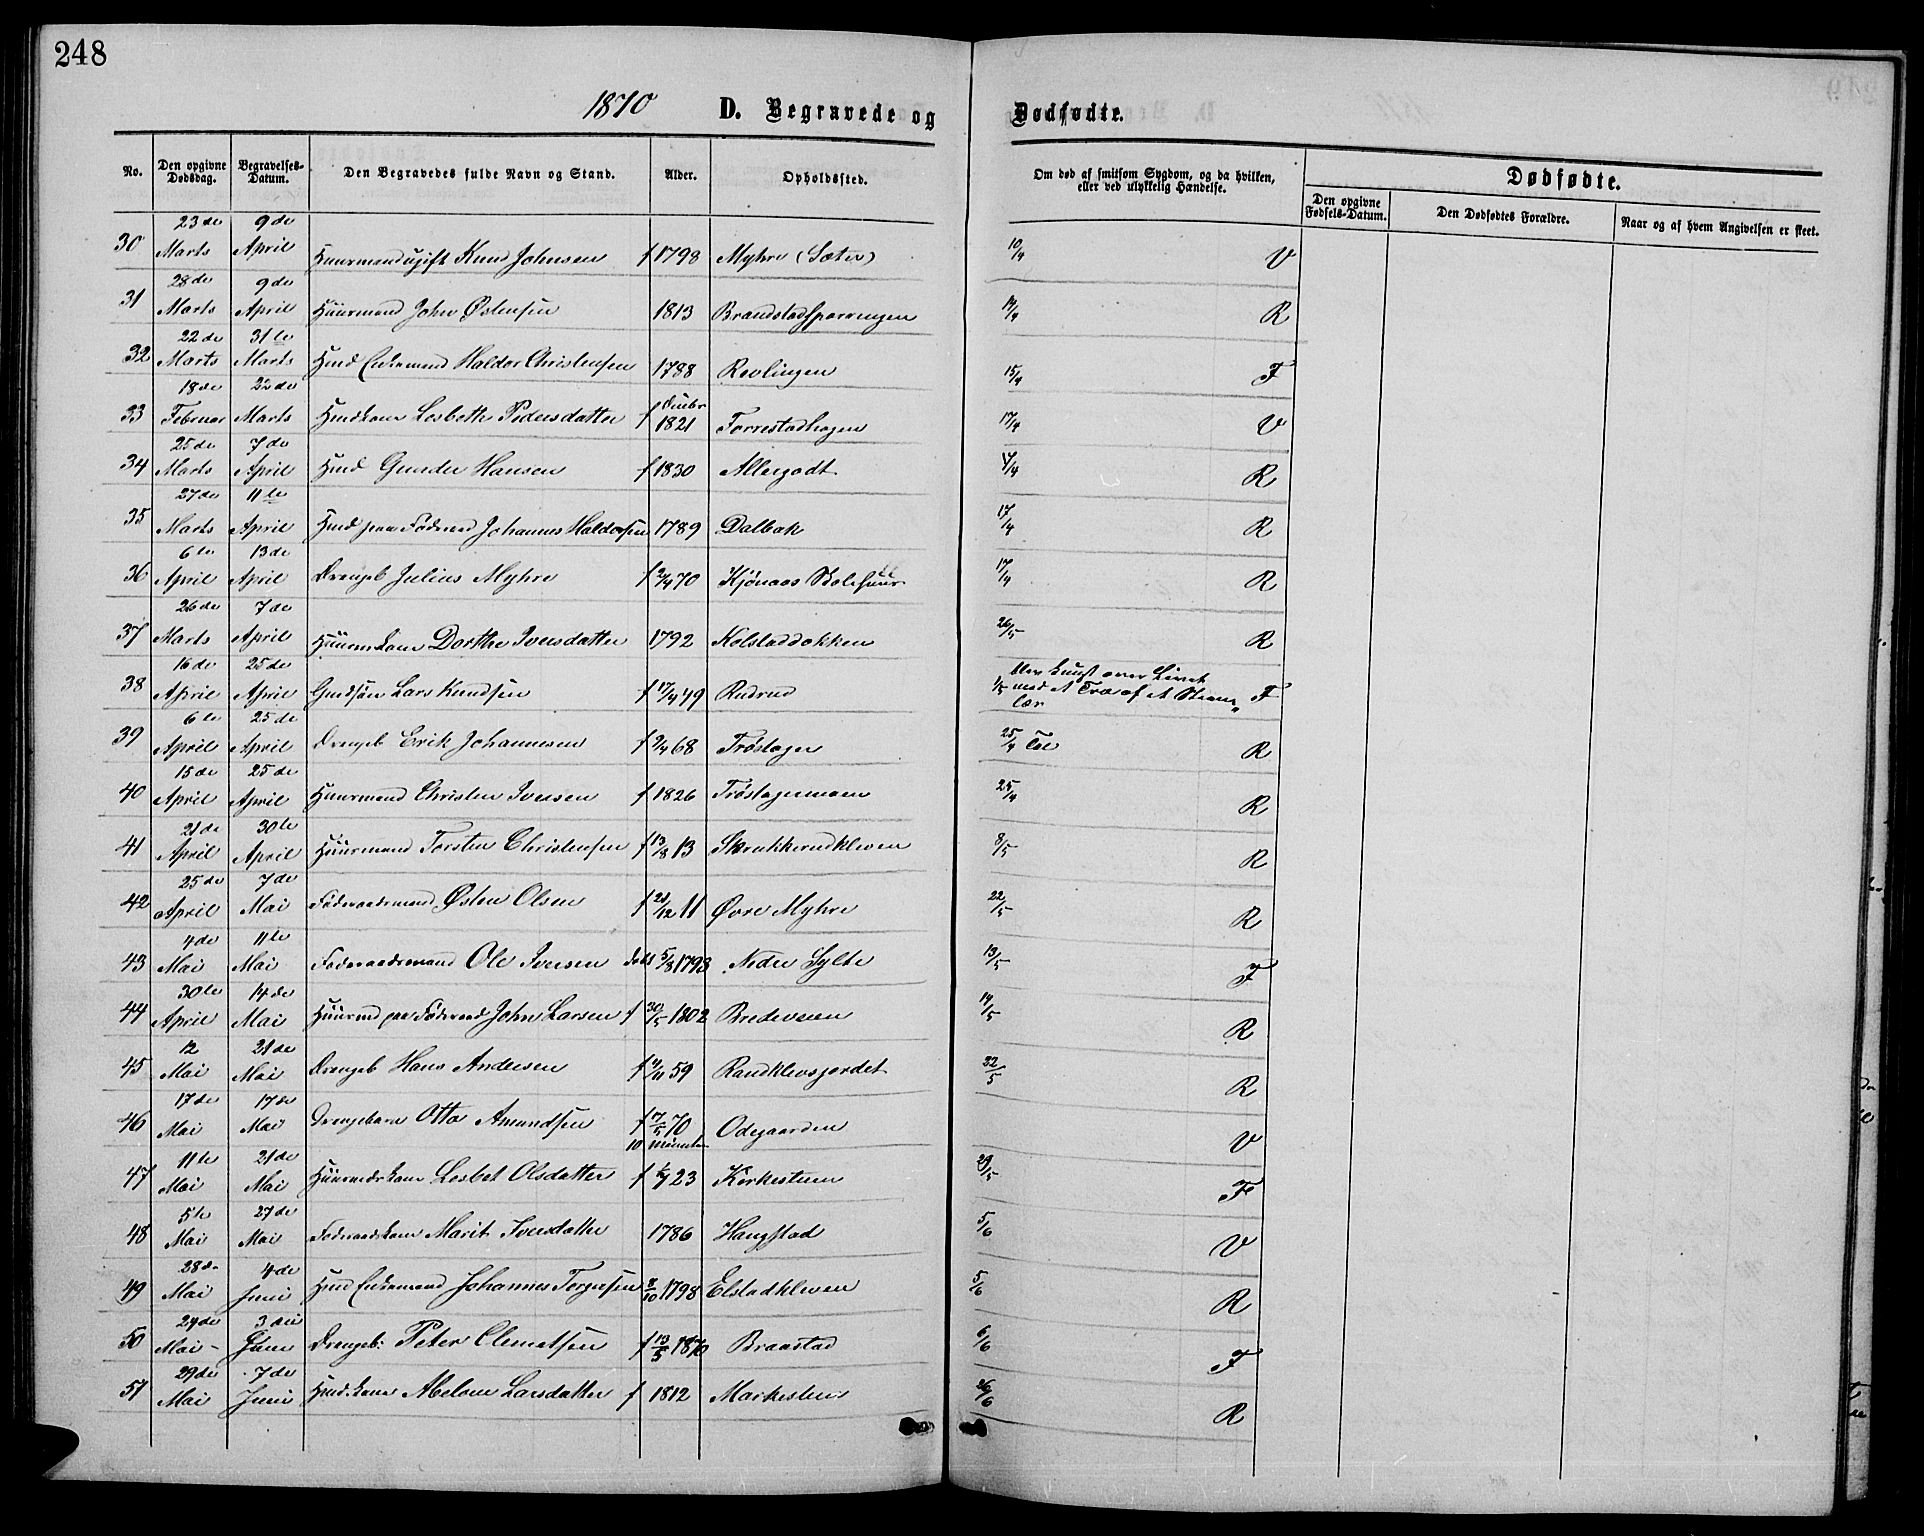 248
1870 D. Begravede og Dødfødte.
No. Den opgivne Dødsdag. Begravelses-Datum. Den Begravedes fulde Navn og Stand. Alder. Opholdssted. Om død af smitsom Sygdom, og da hvilken, eller ved ulykkelig Hændelse. Dødfødte.
Den opgivne Fødsels-Datum. Den Dødfødtes Forældre. Naar og af hvem Angivelsen er skeet.
30 23de Marts 9de April Huusmand ugift Knud Johnsen f 1798 Myhre (Sæter) 10/4 V
31 28de Marts 9de April Huusmand John Østensen 1813 Brandstadsporringen 14/4 R
32 22de Marts 31te Marts Hmd Enkemand Haldor Christensen 1788 Revlingen 15/4 F
33 18de Februar 22de Marts Hmdkone Lesbette Pedersdatter f 1821 Forrestadhagen 17/4 V
34 25de Marts 7de April Hmd Gunder Hansen f 1830 Allergodt R
35 27de Marts 11te April Hmd paa Føderaad Johannes Haldorsen 1789 Dalbak 17/4 R
36 6te April 13de April Drengeb Julius Myhre f 2/4 70 Kjønaas 17/4 R
37 26de Marts 7de April Huusmkone Dorthe Iversdatter 1792 Kolstadløkken 26/5 R
38 16de April 25de April Gmdsøn Lars Knudsen f 17/4 49 Rudrud 1/5 blev knust over Livet med et Træ af et F
39 6te April 25de April Drengeb Erik Johannesen f 9/4 68 Trøstager 25/4 R
40 15de April 25de April Huusmand Christen Iversen f 1826 Trøstagermoen 25/4 R
41 21de April 30te April Huusmand Torsten Christensen f 13/8 13 Skrukkerudkleven 8/5 R
42 25de April 7de Mai Føderaadsmand Østen Olsen f 21/12 11 Øvre Myhre 22/5 R
43 4de Mai 11te Mai Føderaadsmand Ole Iversen født 5/8 1793 Nedre Sylte 13/5 F
44 30te April 14de Mai Huusmd paa Føderaad John Larsen f 30/5 1802 Bredeveien 14/5 R
45 12 Mai 21de Mai Drengeb Hans Andersen f 4/11 59 Randklevsjordet 22/5 R
46 17de Mai 17de Mai Drengebarn Otto Amundsen f 17/5 70 10 minuter Odegaarden V
47 11te Mai 21de Mai Huusmdskone Lesbet Olsdatter f 23 Kirkestuen 29/5 F
48 5te Mai 27de Mai Føderaadskone Marit Iversdatter 1786 Haugstad 5/6 V
49 28de Mai 4de Juni Hmd Enkemand Johannes Torgersen 1798 Elstadkleven 5/6 R
50 24de Mai 3die Juni Drengeb: Peter Clemetsen f 13/5 1870 Braastad 6/6 F
51 29de Mai 7de Juni Hmdskone Abelone Larsdatter f 1812 Markestuen 26/6 R